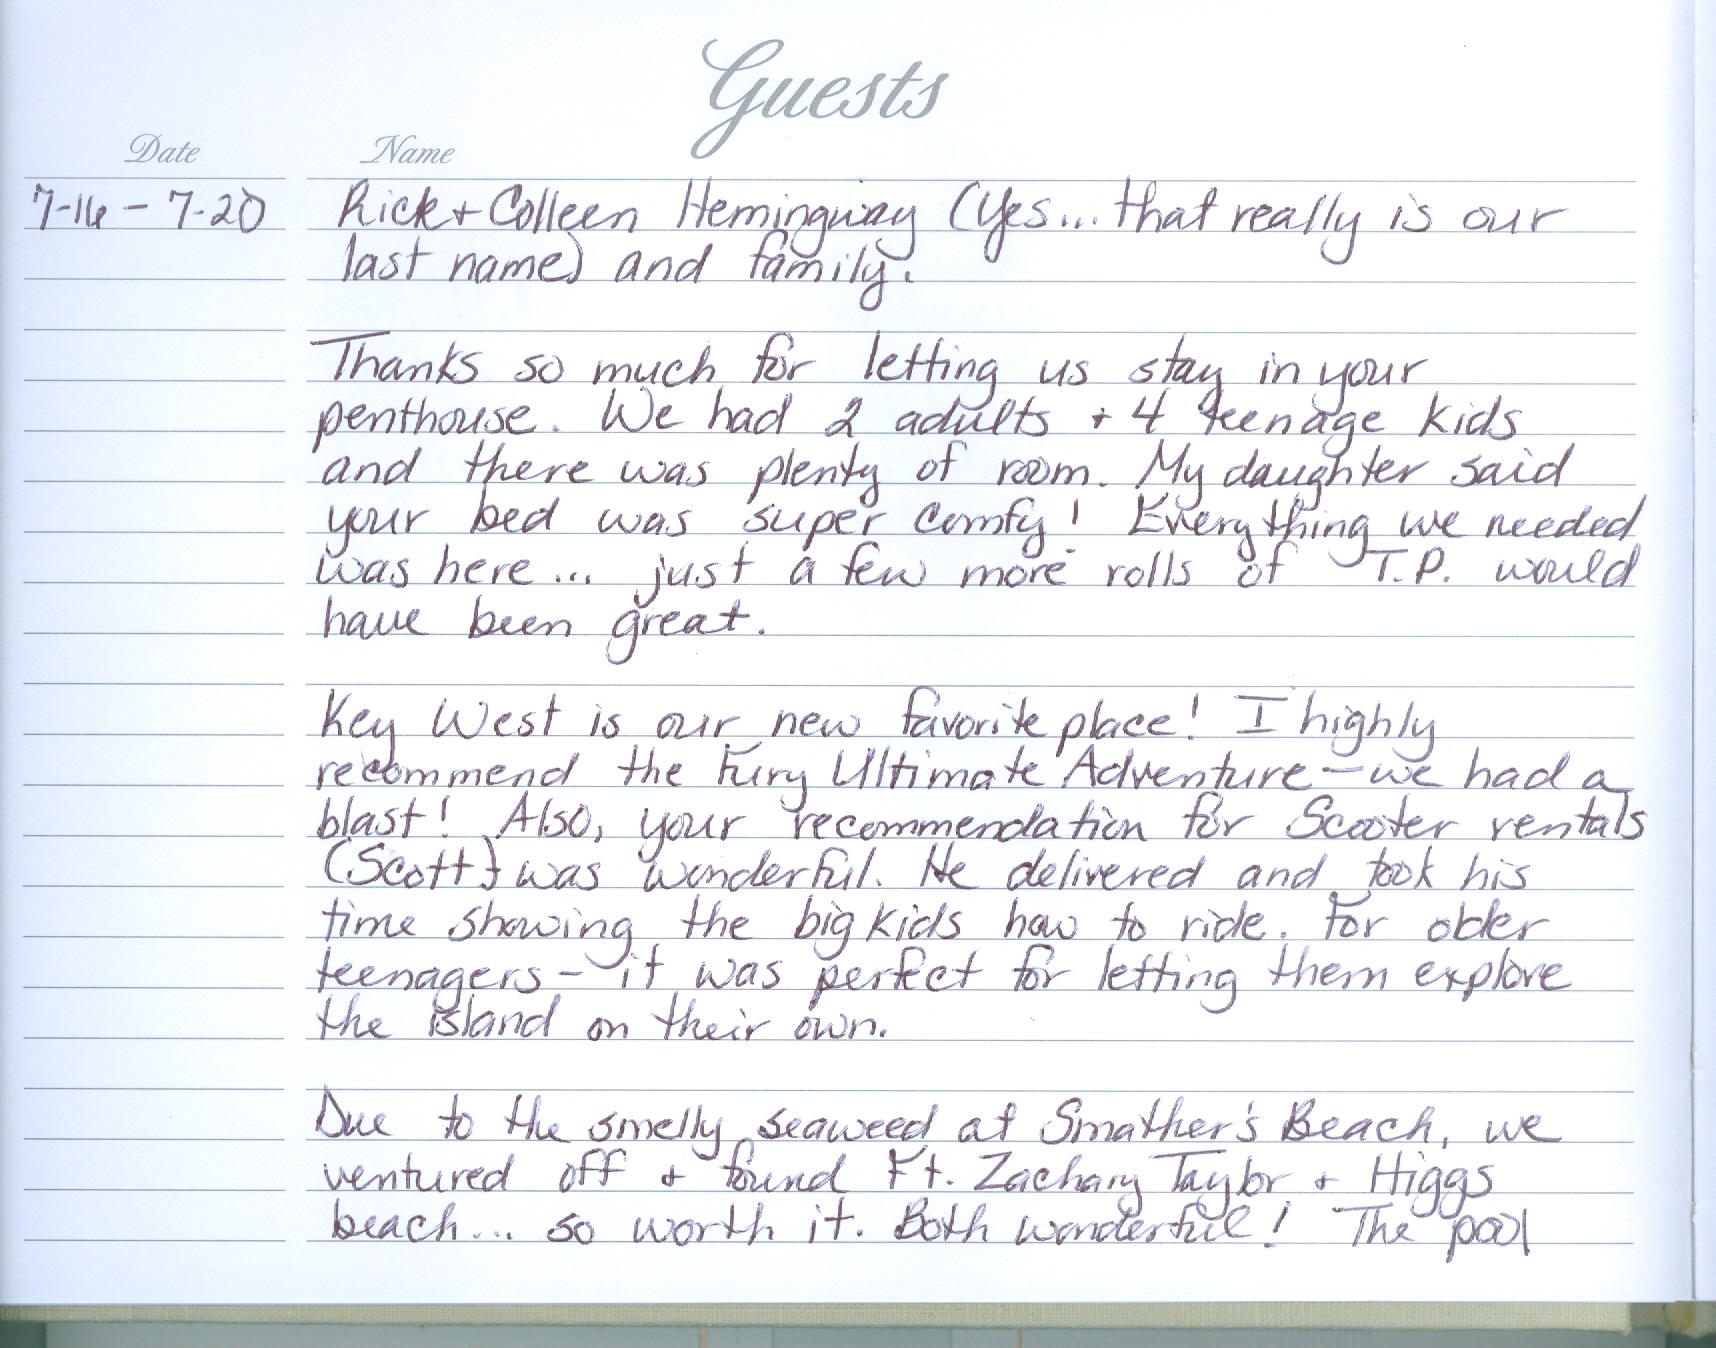 Guests
Date Name
7-16 - 7-20 Rick + Colleen Hemingway (Yes... that really is our
last name) and family.
Thanks so much for letting us stay in your
penthouse. We had 2 adults + 4 teenage kids
and there was plenty of room. My daughter said
your bed was super comfy! Everything we needed
was here... just a few more rolls of T.P. would
have been great.
Key West is our new favorite place! I highly
recommend the Fury Ultimate Adventure - we had a
blast! Also, your recommendation for Scooter rentals
(Scott) was wonderful. He delivered and took his
time showing the big kids how to ride. For older
teenagers - it was perfect for letting them explore
the island on their own.
Due to the smelly seaweed at Smather's Beach, we
ventured off + found Ft. Zachary Taylor + Higgs
beach... so worth it. Both wonderful! The pool